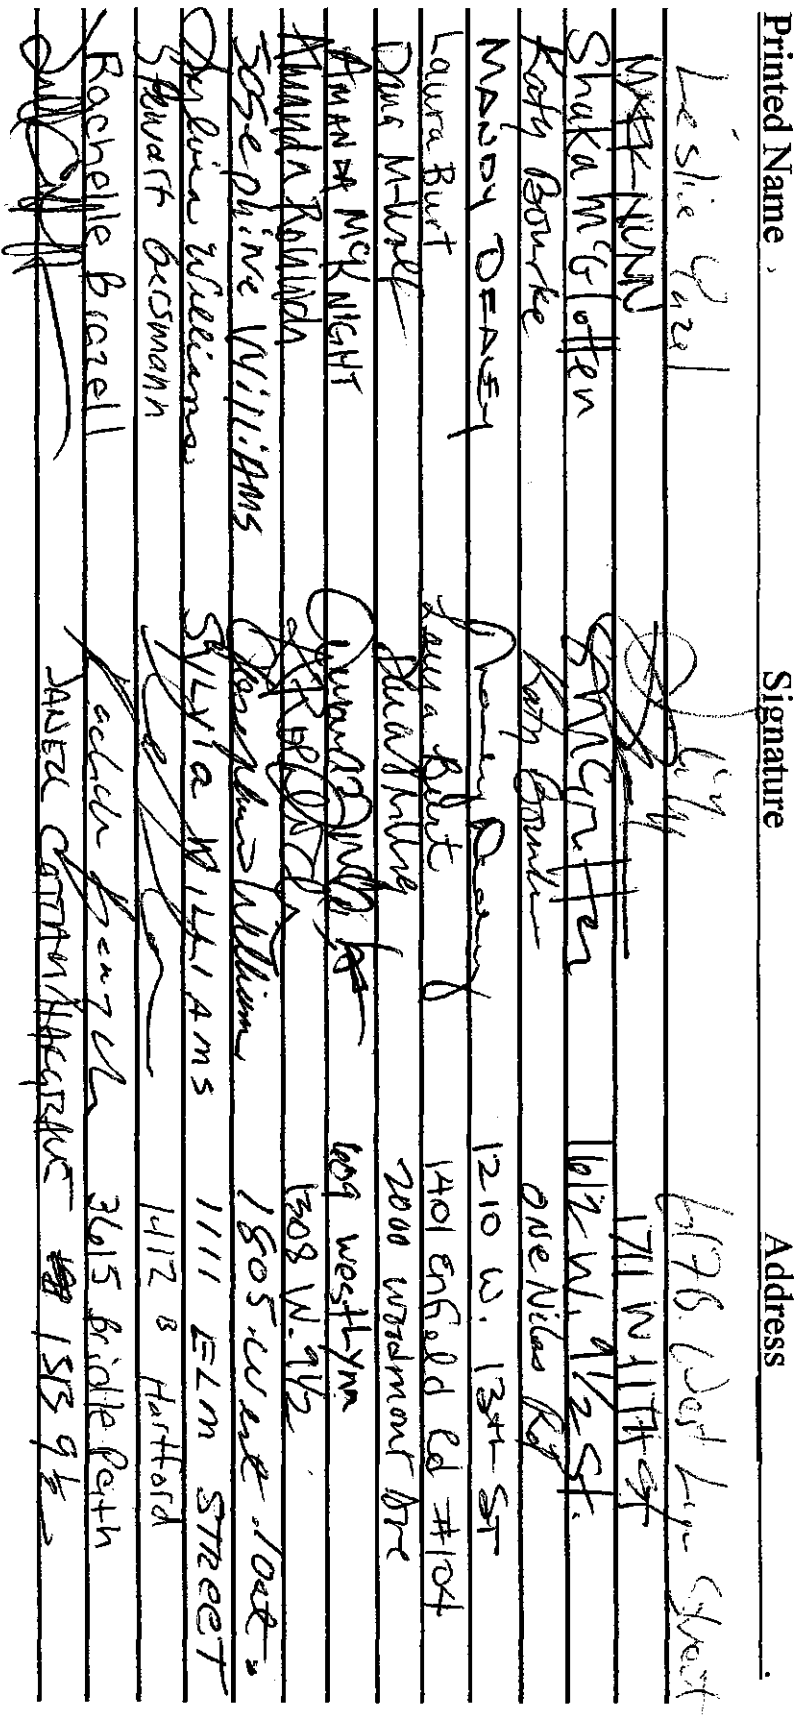 Printed Name Signature Address
Leslie 617 B. West Lynn Street
MARK NUNN 1711 W 11TH ST
Shaka McGlotten 1612 W. 9 1/2 St.
Katy Bourke Katy Bourke One Niles Rd
MANDY DEALEY Mandy Dealey 1210 W. 13th ST
Laura Burt Laura Burt 1401 Enfield Rd #104
Dana 2000 Woodmont Ave
AMANDA MCKNIGHT 609 West Lynn
Amanda 1308 W. 9 1/2
Josephine Williams Josephine William 1805 West
Sylvia Williams SYLVIA WILLIAMS 1111 ELM STREET
Stewart Gersmann 1412 B Hartford
Rachelle Brazell 3615 Bridle Path
1513 9 1/2